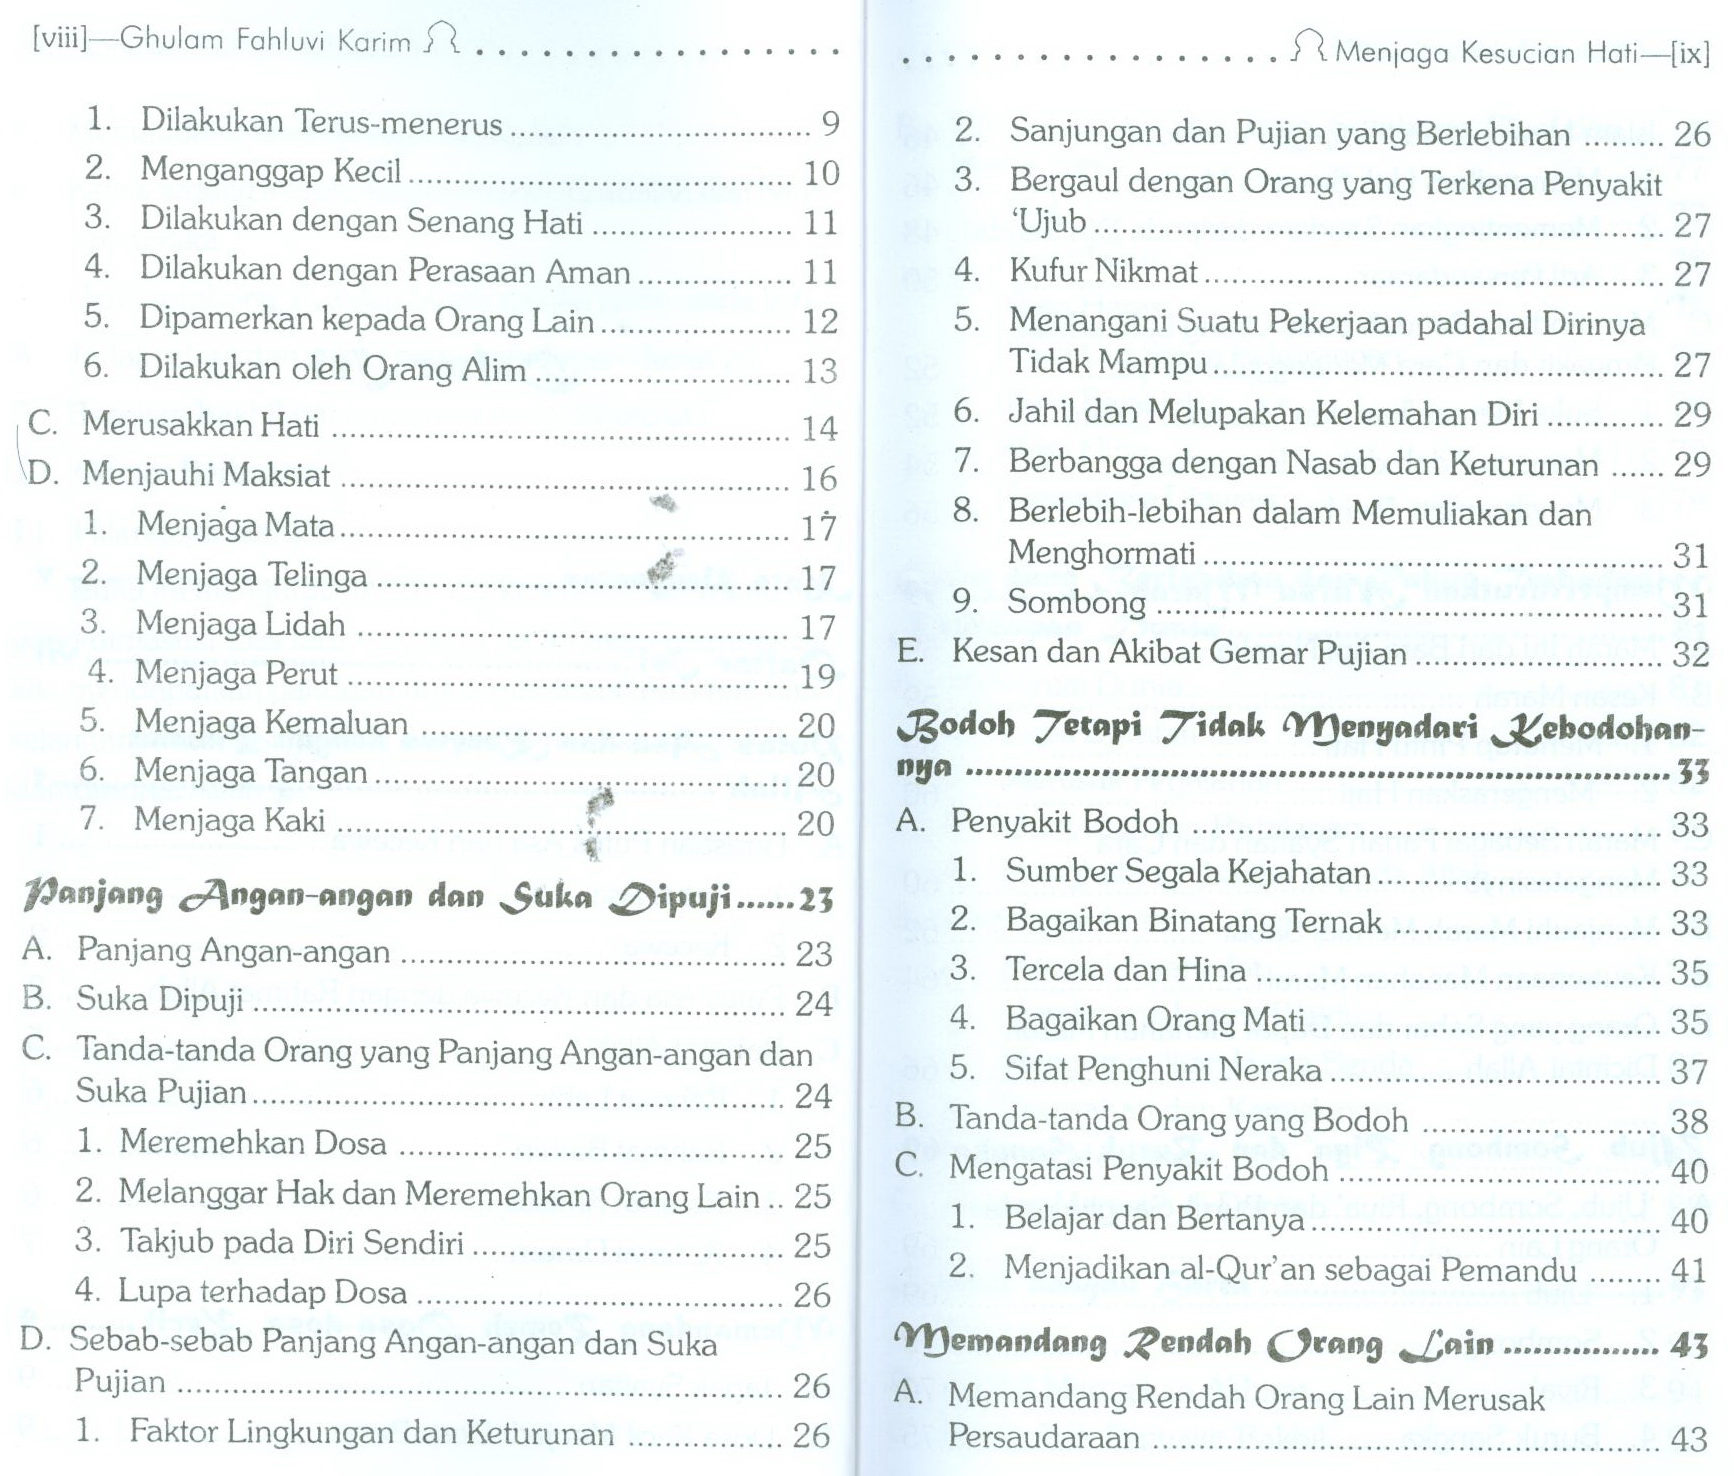 [viii]—Ghulam Fahluvi Karim ..................
1. Dilakukan Terus-menerus .............................. 9
2. Menganggap Kecil ....................................... 10
3. Dilakukan dengan Senang Hati .................... 11
4. Dilakukan dengan Perasaan Aman ............... 11
5. Dipamerkan kepada Orang Lain ................... 12
6. Dilakukan oleh Orang Alim .......................... 13
C. Merusakkan Hati .............................................. 14
D. Menjauhi Maksiat ............................................. 16
1. Menjaga Mata ............................................. 17
2. Menjaga Telinga ......................................... 17
3. Menjaga Lidah ........................................... 17
4. Menjaga Perut ............................................ 19
5. Menjaga Kemaluan ..................................... 20
6. Menjaga Tangan ......................................... 20
7. Menjaga Kaki ............................................. 20
Panjang Angan-angan dan Suka Dipuji ...... 23
A. Panjang Angan-angan ....................................... 23
B. Suka Dipuji ..................................................... 24
C. Tanda-tanda Orang yang Panjang Angan-angan dan
Suka Pujian ..................................................... 24
1. Meremehkan Dosa ....................................... 25
2. Melanggar Hak dan Meremehkan Orang Lain .. 25
3. Takjub pada Diri Sendiri ............................... 25
4. Lupa terhadap Dosa ..................................... 26
D. Sebab-sebab Panjang Angan-angan dan Suka
Pujian ............................................................. 26
1. Faktor Lingkungan dan Keturunan ............... 26
.................. Menjaga Kesucian Hati—[ix]
2. Sanjungan dan Pujian yang Berlebihan ......... 26
3. Bergaul dengan Orang yang Terkena Penyakit
‘Ujub .......................................................... 27
4. Kufur Nikmat .............................................. 27
5. Menangani Suatu Pekerjaan padahal Dirinya
Tidak Mampu .............................................. 27
6. Jahil dan Melupakan Kelemahan Diri ............ 29
7. Berbangga dengan Nasab dan Keturunan ...... 29
8. Berlebih-lebihan dalam Memuliakan dan
Menghormati .............................................. 31
9. Sombong ................................................... 31
E. Kesan dan Akibat Gemar Pujian ......................... 32
Bodoh Tetapi Tidak Menyadari Kebodohan-
nya .............................................................. 33
A. Penyakit Bodoh ............................................... 33
1. Sumber Segala Kejahatan ............................ 33
2. Bagaikan Binatang Ternak ............................ 33
3. Tercela dan Hina ......................................... 35
4. Bagaikan Orang Mati ................................... 35
5. Sifat Penghuni Neraka ................................. 37
B. Tanda-tanda Orang yang Bodoh ........................ 38
C. Mengatasi Penyakit Bodoh ................................ 40
1. Belajar dan Bertanya ................................... 40
2. Menjadikan al-Qur’an sebagai Pemandu ....... 41
Memandang Rendah Orang Lain ................ 43
A. Memandang Rendah Orang Lain Merusak
Persaudaraan .................................................. 43